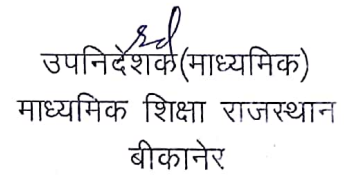 sd
उपनिदेशक(माध्यमिक)
माध्यमिक शिक्षा राजस्थान
बीकानेर